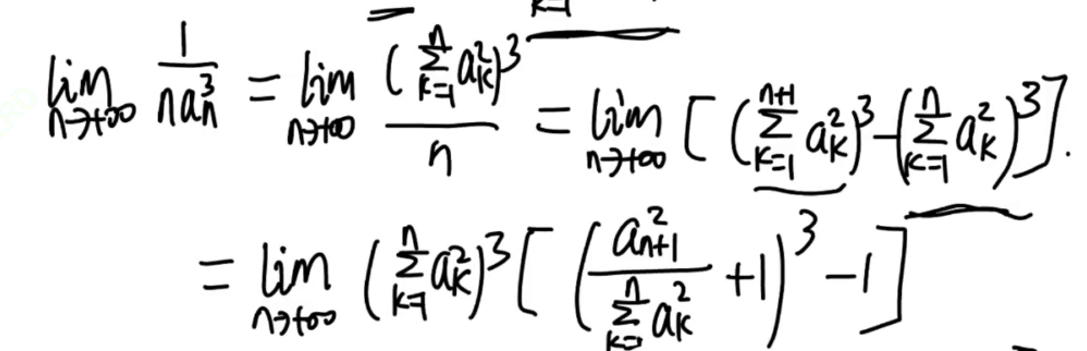 k=1
lim_{n→+∞} \frac{1}{na_n^3} = lim_{n→+∞} \frac{(\sum_{k=1}^{n} a_k^2)^3}{n} = lim_{n→+∞} [ (\sum_{k=1}^{n+1} a_k^2)^3 - (\sum_{k=1}^{n} a_k^2)^3 ].
= lim_{n→+∞} (\sum_{k=1}^{n} a_k^2)^3 [ ( \frac{a_{n+1}^2}{\sum_{k=1}^{n} a_k^2} + 1 )^3 - 1 ]